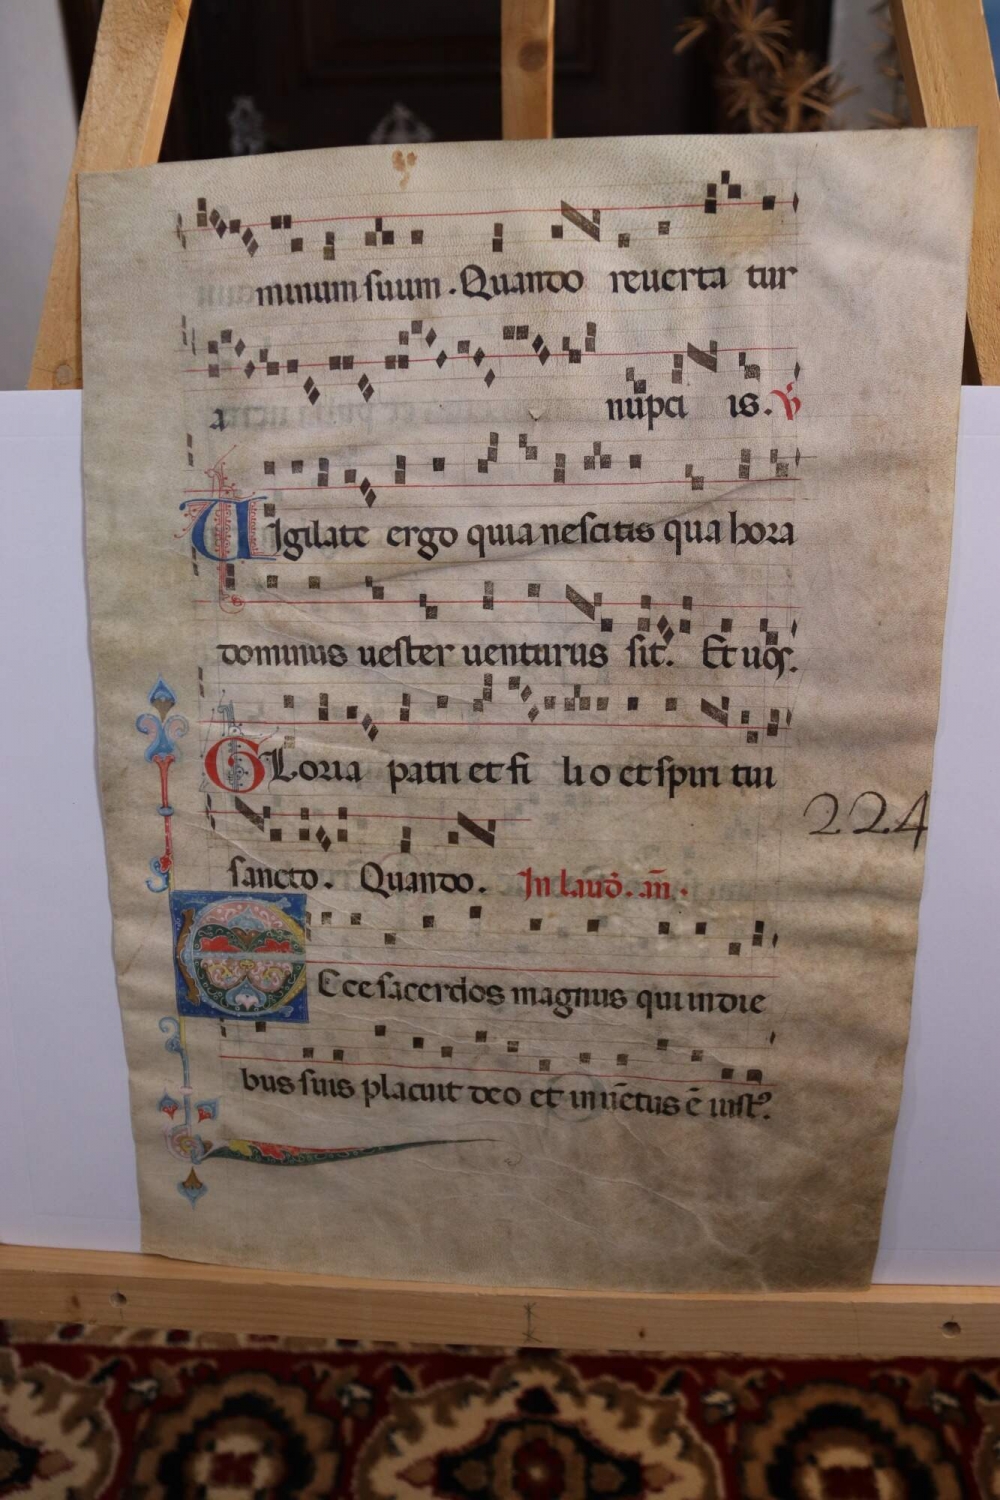 minum suum. Quando reuerta tur
a nupci is. V̄
UIgilate ergo quia nescitis qua hora
dominus uester uenturus sit. Et uos.
GLoria patri et fi li o et spiri tui
sancto. Quando. In laud̄. añ.
224
ECce sacerdos magnus qui in die
bus suis placuit deo et inuētus ē iustꝰ.